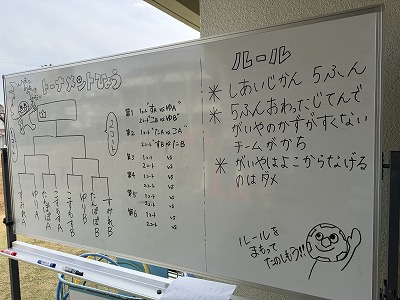 トーナメントひょう
第1 1コート "すA vs ゆA"
2コート "すB vs ゆB"
第2 1コート "たA vs こA"
2コート "すB vs たB"
第3 1コート vs
2コート vs
第4 1コート vs
2コート vs
第5 1コート vs
2コート vs
第6 1コート vs
2コート vs
すみれA
ゆりA
たんぽぽA
こすもすA
こすもすB
ゆりB
たんぽぽB
すみれB
ルール
* しあいじかん 5ふん
* 5ふんおわったじてんで
がいやのかずがすくない
チームがかち
* がいやはよこからなげる
のはダメ
ルールを
まもって
たのしもう!!